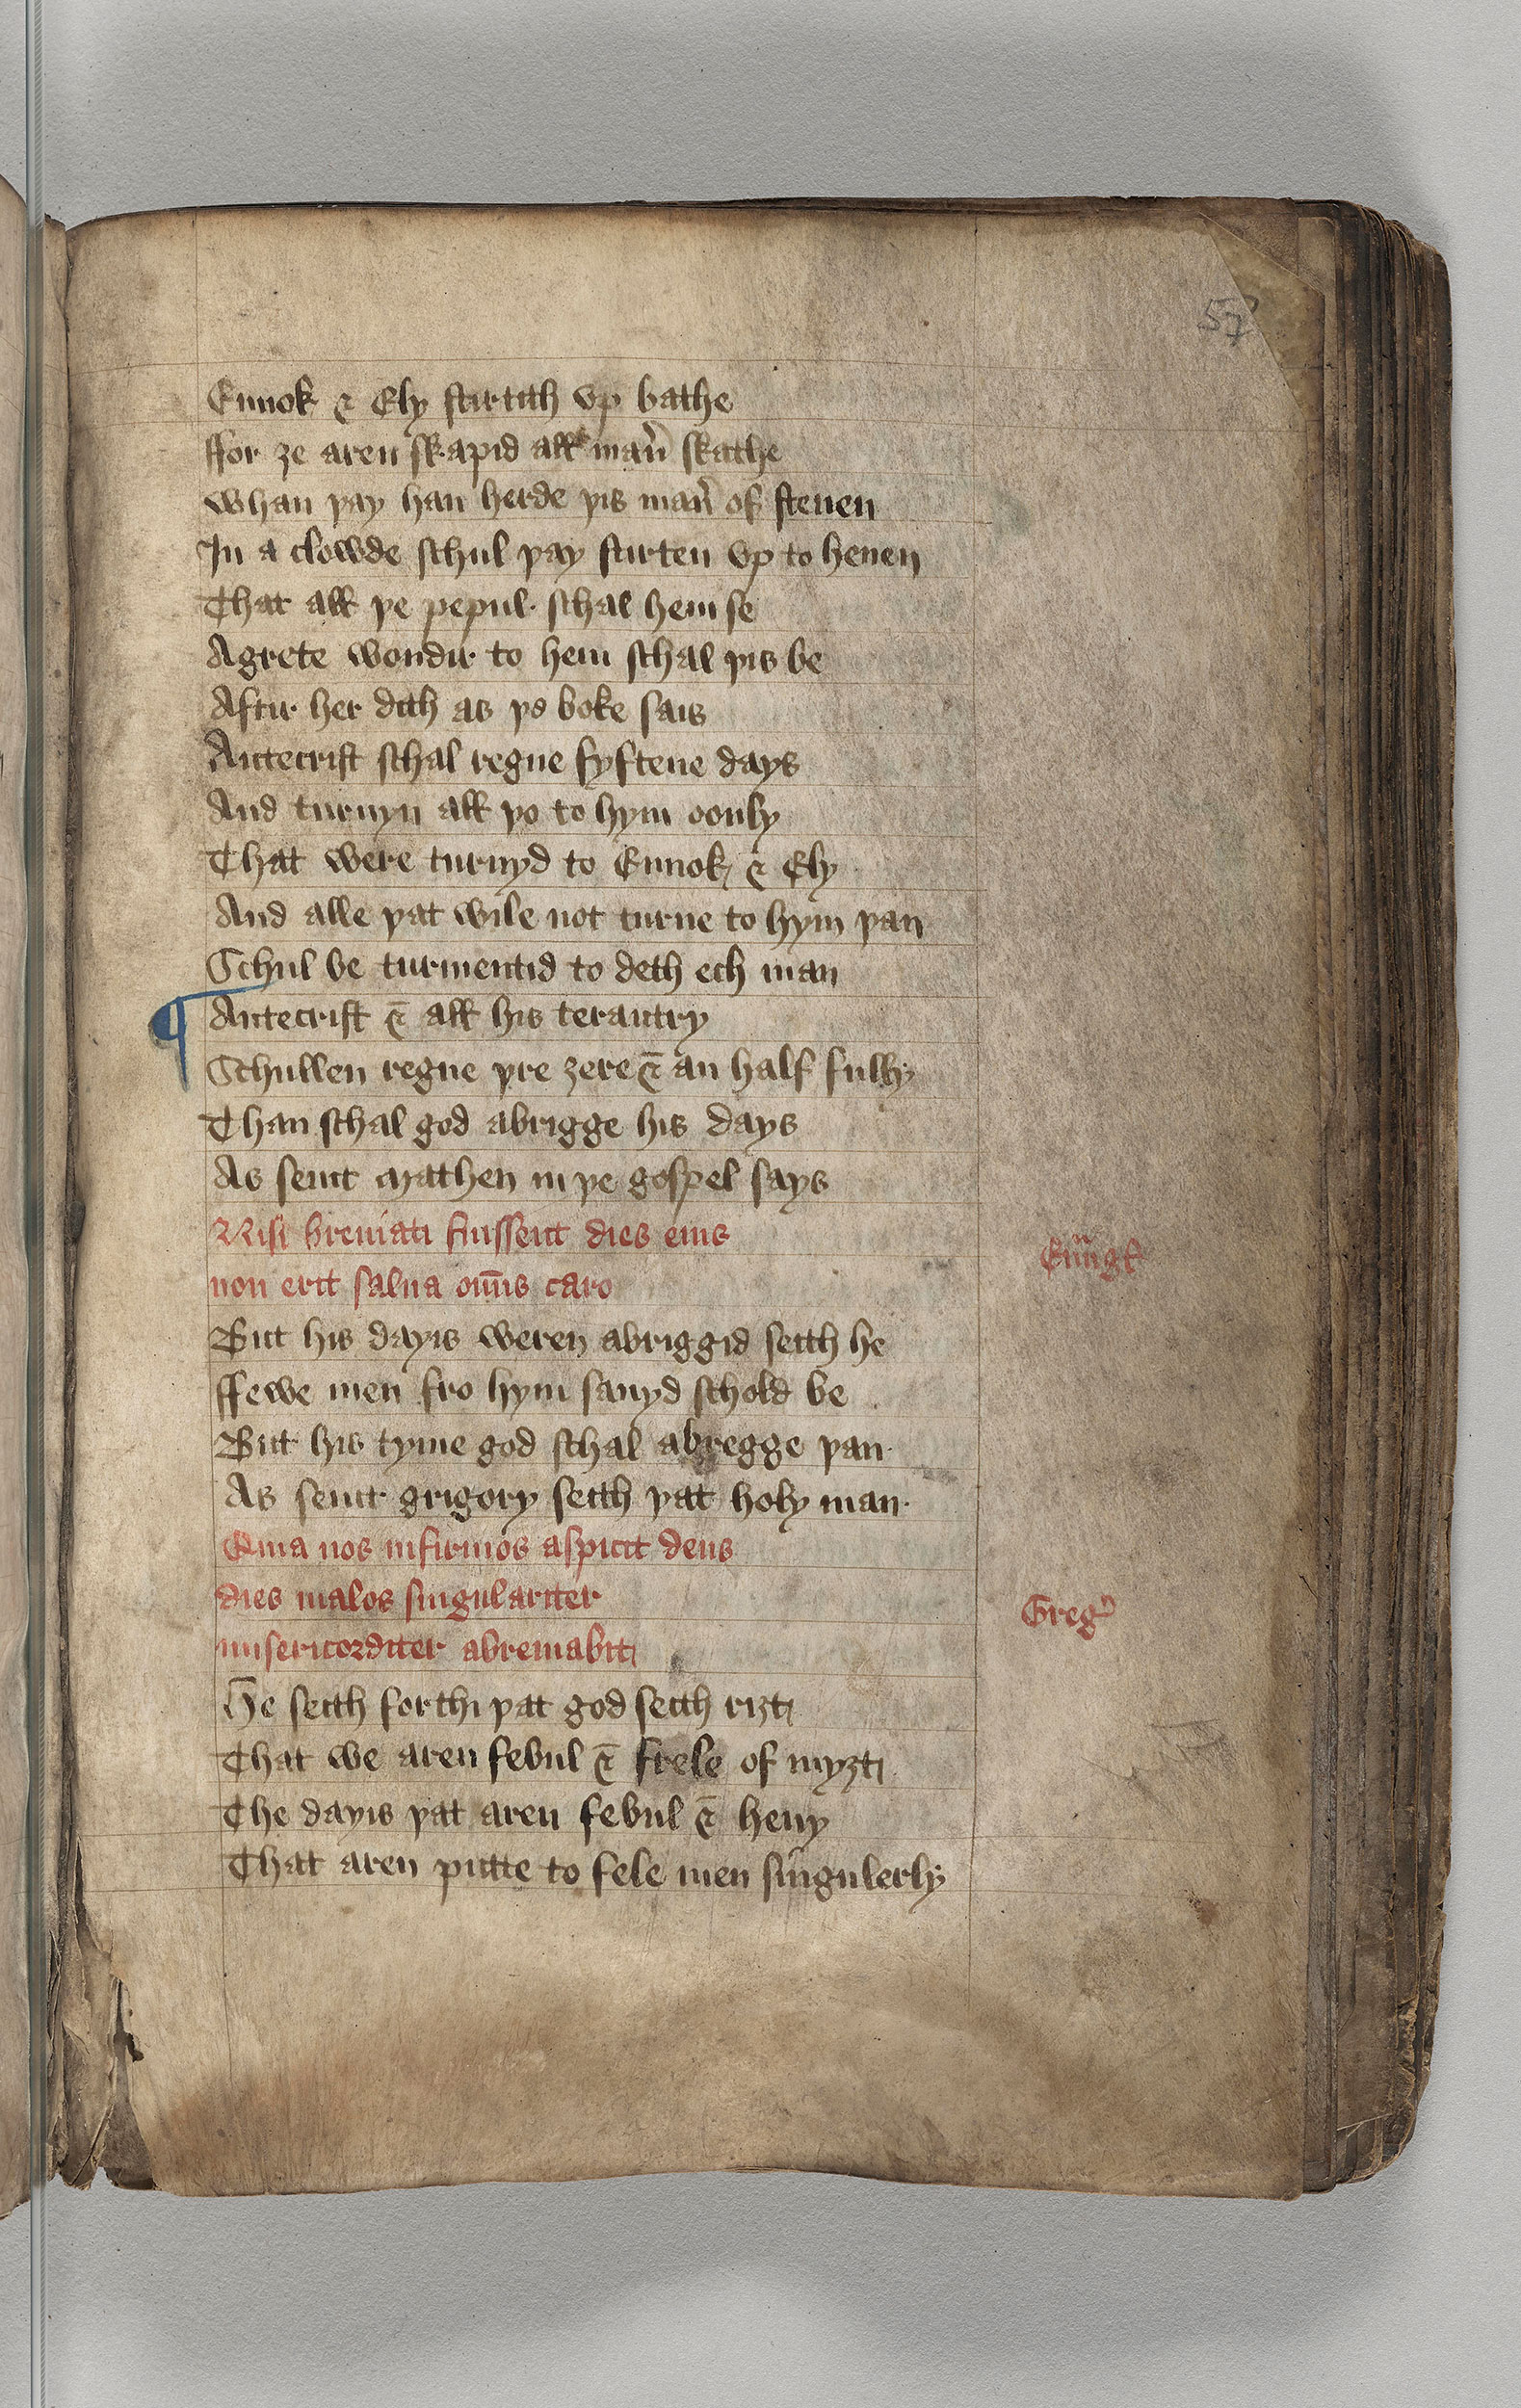 57
Ennok & Ely stirtith vp bathe
ffor ȝe aren skapid all man̄ skathe
Whan þay han herde þis man̄ of steuen
In a clowde schul þay stirten vp to heuen
That all þe pepul schal hem se
A grete wondir to hem schal þis be
Aftir her deth as þe boke sais
Antecrist schal regne fyftene days
And turnyn all þo to hym oonly
That were turnyd to Ennok & Ely
And alle þat wile not turne to hym þan
Schul be turmentid to deth ech man
¶ Antecrist & all his terantry
Schullen regne þre ȝere & an half fully
Than schal god abrigge his days
As seint Matheu in þe gospel says
Nisi breuiati fuissent dies eius
non erit salua om̄is caro
Eu̅ngl̓
But his dayis weren abriggid seith he
ffewe men fro hym sauyd schold be
But his tyme god schal abregge þan
As seint grigory seith þat holy man
Quia nos infirmos aspicit deus
dies malos singulariter
Greg̓
misericorditer abreuiabit
He seith forthi þat god seith riȝt
That we aren febul & frele of myȝt
The dayis þat aren febul & heuy
That aren putte to fele men singulerly